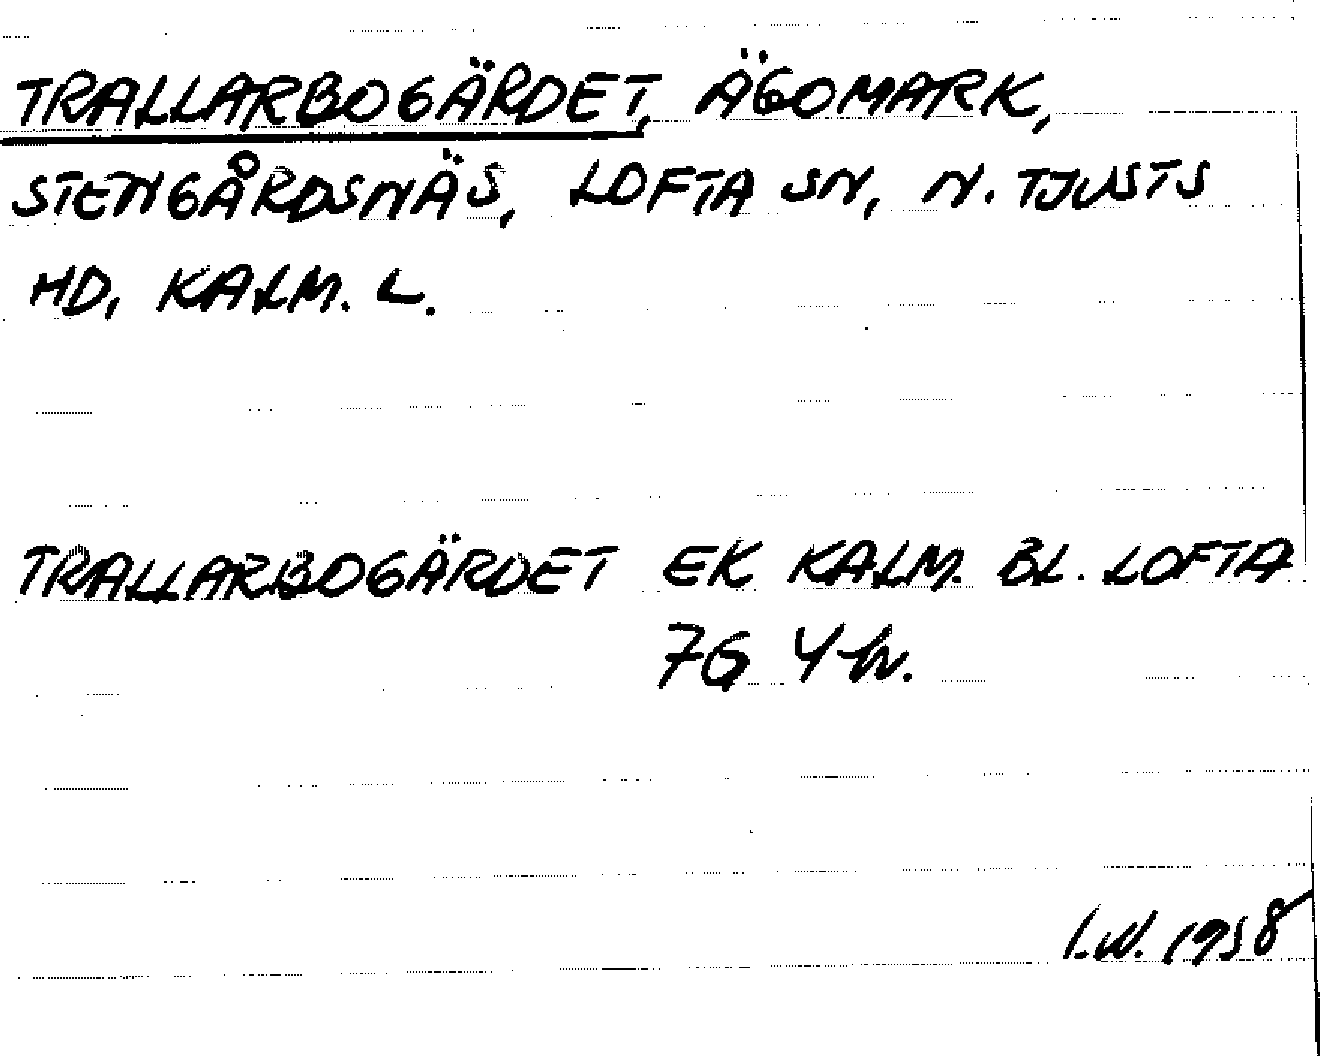 TRALLARBOGÄRDET, ÄGOMARK,
STENGÅRDSNÄS, LOFTA SN, N. TJUSTS
HD, KALM. L.
TRALLARBOGÄRDET EK KALM. BL. LOFTA
7G 4 h.
I.W. 1958